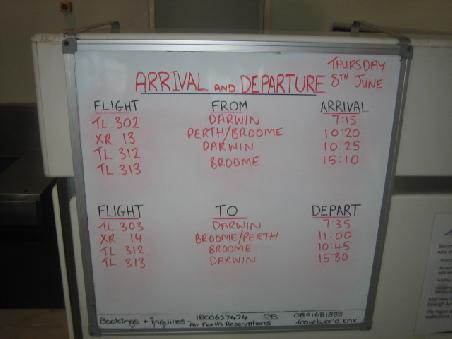 THURSDAY
ARRIVAL AND DEPARTURE 5TH JUNE
FLIGHT FROM ARRIVAL
TL 302 DARWIN 7:15
XR 13 PERTH/BROOME 10:20
TL 312 DARWIN 10:25
TL 313 BROOME 15:10
FLIGHT TO DEPART
TL 303 DARWIN 7:35
XR 14 BROOME/PERTH 11:00
TL 312 BROOME 10:45
TL 313 DARWIN 15:30
Bookings + inquiries - 1800627474
Air North Reservations travelworld knx